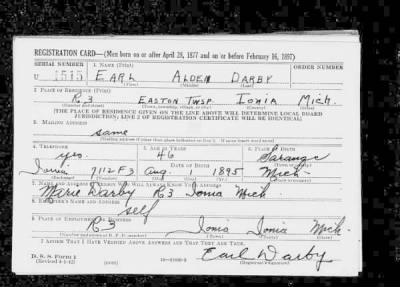 REGISTRATION CARD—(Men born on or after April 28, 1877 and on or before February 16, 1897)
SERIAL NUMBER 1. NAME (Print) ORDER NUMBER
U 1515 EARL ALDEN DARBY
(First) (Middle) (Last)
2. PLACE OF RESIDENCE (Print)
R.3 EASTON TWSP. IONIA MICH.
(Number and street) (Town, township, village, or city) (County) (State)
[THE PLACE OF RESIDENCE GIVEN ON THE LINE ABOVE WILL DETERMINE LOCAL BOARD
JURISDICTION; LINE 2 OF REGISTRATION CERTIFICATE WILL BE IDENTICAL]
3. MAILING ADDRESS
same
[Mailing address if other than place indicated on line 2. If same insert word same]
4. TELEPHONE 5. AGE IN YEARS 6. PLACE OF BIRTH
yes. 46
DATE OF BIRTH
Ionia 7112 F3 Aug. 1 1895 Mich
7. NAME AND ADDRESS OF PERSON WHO WILL ALWAYS KNOW YOUR ADDRESS
Marie Darby R3 Ionia Mich
8. EMPLOYER'S NAME AND ADDRESS
self
9. PLACE OF EMPLOYMENT OR BUSINESS
R-3 Ionia Ionia Mich.
(Number and street or R. F. D. number) (Town) (County) (State)
I AFFIRM THAT I HAVE VERIFIED ABOVE ANSWERS AND THAT THEY ARE TRUE.
D. S. S. Form 1
(Revised 4-1-42) (over) Earl Darby
(Registrant's signature)